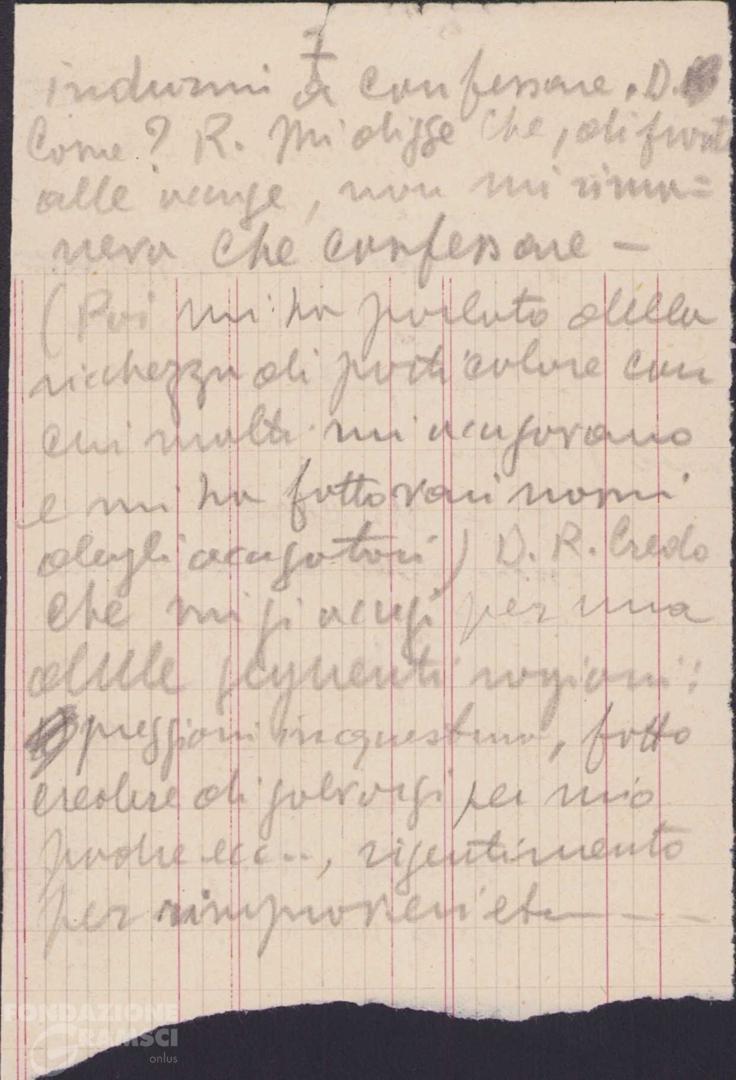 7
indurmi a confessare. D.
Come? R. Mi disse che, di front
alle accuse, non mi rima=
neva che confessare —
(Poi mi ha parlato della
ricchezza di particolare con
cui molti mi accusavano
e mi ha fatto vari nomi
degli accusatori) D. R. Credo
che mi si accusi per una
delle seguenti ragioni:
pressioni in questura, fatto
credere di salvarsi per mio
padre ecc..., risentimento
per rimproveri etc — —
FONDAZIONE
GRAMSCI
onlus